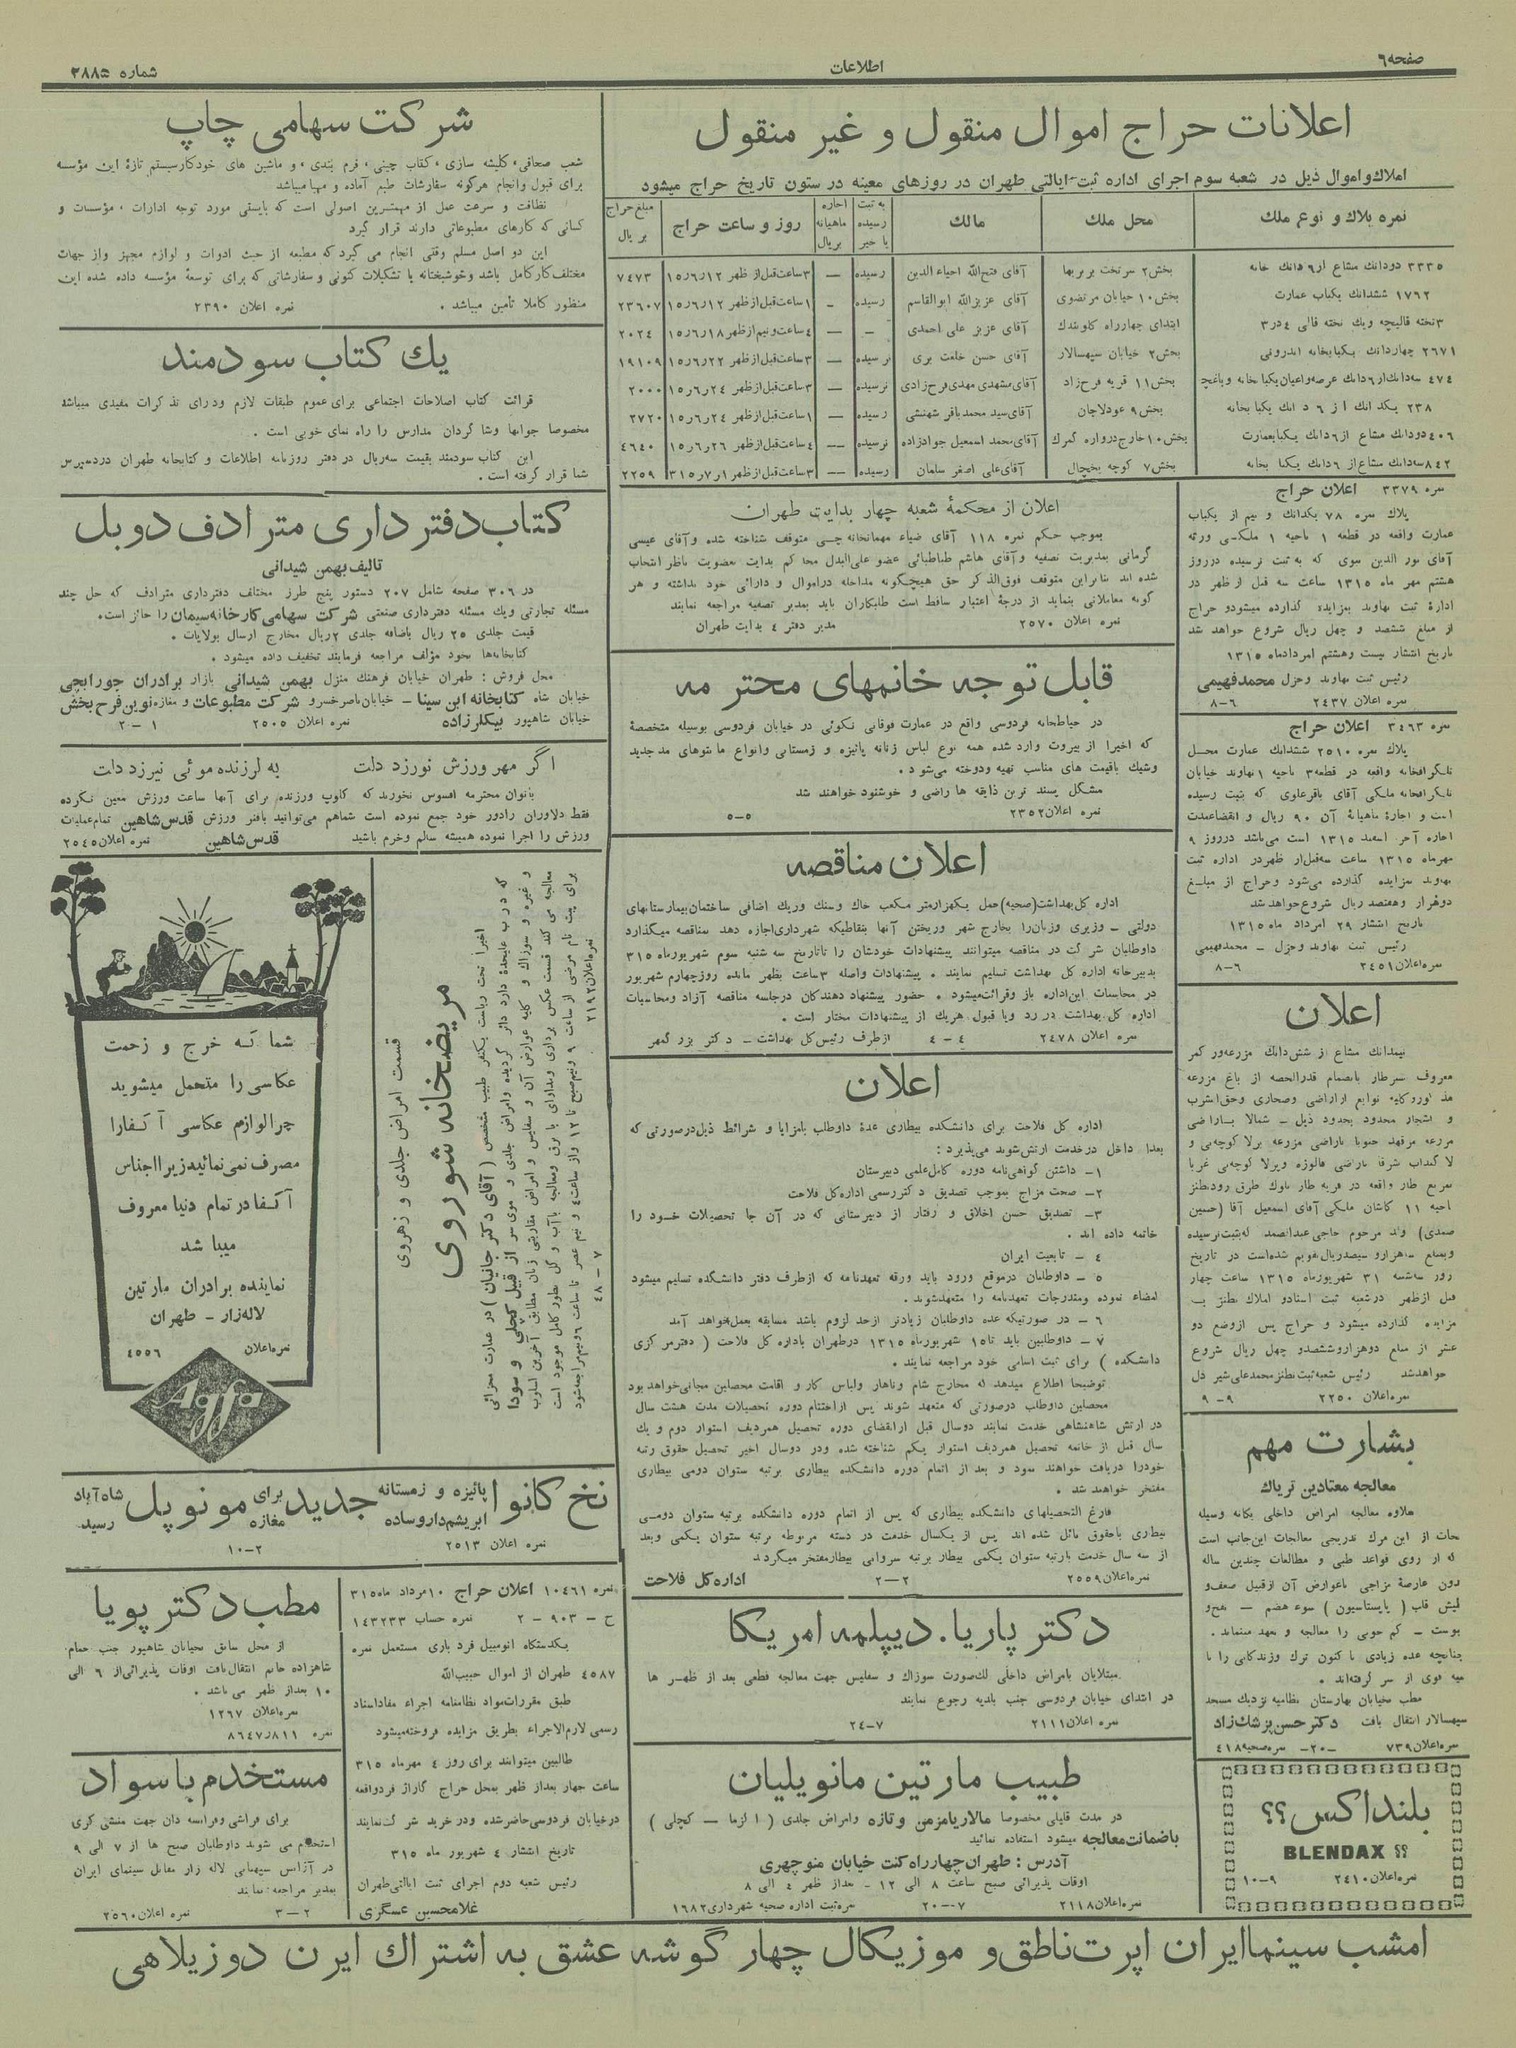 صفحه ٦
اطلاعات
شماره ۲۸۸۵
اعلانات حراج اموال منقول و غیر منقول
املاك و اموال ذیل در شعبه سوم اجرای اداره ثبت ایالتی طهران در روزهای معینه در ستون تاریخ حراج میشود
نمره پلاك و نوع ملك | محل ملك | مالك | به ثبت رسیده یا خیر | اجاره ماهیانه بریال | روز و ساعت حراج | مبلغ حراج بریال
۳۳۳۵ دودانك مشاع از ٦ دانك خانه | بخش ۲ سرتخت بربریها | آقای فتح‌الله احیاءالدین | رسیده | — | ۳ ساعت قبل از ظهر ۱۵٫٦٫۱۲ | ۷٤۷۳
۱۷٦۲ ششدانك یکباب عمارت | بخش ۱۰ خیابان مرتضوی | آقای عزیزالله ابوالقاسم | رسیده | - | ۱ ساعت قبل از ظهر ۱۵٫٦٫۱۲ | ۲۳٦۰۷
۳ تخته قالیچه ویك تخته قالی ٤ در ۳ | ابتدای چهارراه | آقای عزیز علی احمدی | - | — | ٤ ساعت و نیم از ظهر ۱۵٫٦٫۱۸ | ۲۰۲٤
۲٦۷۱ چهاردانك یکبابخانه اندرونی | بخش ۲ خیابان سپهسالار | آقای حسن خلعت بری | نرسیده | — | ۳ ساعت قبل از ظهر ۱۵٫٦٫۲۲ | ۱۹۱۰۹
٤۷٤ سه‌دانك از ٦ دانك عرصه واعیان یکبا خانه و باغچه | بخش ۱۱ قریه فرح‌زاد | آقای مشهدی مهدی فرح‌زادی | نرسیده | — | ۳ ساعت قبل از ظهر ۱۵٫٦٫۲٤ | ۲۰۰۰
۲۳۸ یکدانك از ٦ دانك یکبابخانه | بخش ۹ عودلاجان | آقای سید محمدباقر شهنشی | رسیده | — | ۱ ساعت قبل از ظهر ۱۵٫٦٫۲٤ | ۲۷۲۰
٤۰٦ دودانك مشاع از ٦ دانك یکبابعمارت | بخش ۱۰ خارج دروازه گمرك | آقای محمد اسمعیل جوادزاده | نرسیده | — | ٤ ساعت قبل از ظهر ۱۵٫٦٫۲٦ | ٤٦٤۰
۸٤۲ سه‌دانك مشاع از ٦ دانك یکبابخانه | بخش ۷ کوچه یخچال | آقای علی اصغر سلمان | رسیده | — | ۳ ساعت قبل از ظهر ۳۱۵٫۷٫۱ | ۲۲۵۹
نمره ۳۳۷۹ اعلان حراج
پلاك نمره ۷۸ یکدانك و نیم از یکباب
عمارت واقعه در قطعه ۱ ناحیه ۱ ملکی ورثه
آقای نور الدین سوی که به ثبت نرسیده درروز
هشتم مهر ماه ۱۳۱۵ ساعت سه قبل از ظهر در
ادارهٔ ثبت نهاوند بمزایده گذارده میشودو حراج
از مبلغ ششصد و چهل ریال شروع خواهد شد
تاریخ انتشار بیست وهشتم امردادماه ۱۳۱۵
رئیس ثبت نهاوند وحزل محمدفهیمی
نمره اعلان ۲٤۳۷ ٦–۸
نمره ۳٤٦۳ اعلان حراج
پلاك نمره ۲۵۱۰ ششدانك عمارت محل
تلگرافخانه واقعه در قطعه ۳ ناحیه ۱ نهاوند خیابان
تلگرافخانه ملکی آقای باقرعلوی که بثبت رسیده
است و اجارهٔ ماهیانهٔ آن ۹۰ ریال و انقضاءمدت
اجاره آخر اسفند ۱۳۱۵ است می‌باشد درروز ۹
مهرماه ۱۳۱۵ ساعت سه‌قبل‌از ظهردر اداره ثبت
نهاوند بمزایده گذارده می‌شود وحراج از مبلغ
دوهزار وهفتصد ریال شروع‌خواهدشد
تاریخ انتشار ۲۹ امرداد ماه ۱۳۱۵
رئیس ثبت نهاوند وحزل – محمدفهیمی
نمره‌اعلان ۲٤۵۱ ٦–۸
اعلان
نیمدانك مشاع از شش‌دانك مزرعه‌ور کمر
معروف شرطار بانضمام قدرالحصه از باغ مزرعه
و اشجار محدود بحدود ذیل – شمالا باراضی
ناحیه ۱۱ کاشان ملکی آقای اسمعیل آقا (حسین
صمدی) ولد مرحوم حاجی عبدالصمد که‌بثبت‌نرسیده
روز سه‌شنبه ۳۱ شهریورماه ۱۳۱۵ ساعت چهار
قبل ازظهر درشعبه ثبت اسنادو املاك نطنز به
مزایده گذارده میشود و حراج پس ازوضع دو
عشر از مبلغ دوهزاروششصدو چهل ریال شروع
خواهدشد رئیس شعبه‌ثبت‌نطنزمحمدعلی‌شیر دل
نمره‌اعلان ۲۲۵۰ ۹–۹
بشارت مهم
معالجه معتادین تریاك
علاوه معالجه امراض داخلی یگانه وسیله
نجات از این مرك تدریجی معالجات این‌جانب است
که از روی قواعد طبی و مطالعات چندین ساله
بدون عارضهٔ مزاجی باعوارض آن ازقبیل ضعف‌و
طپش قلب ( پالپیتاسیون ) سوء هضم – نفخ‌و
یبوست – کم خونی را معالجه و تعهد مینماید.
چنانچه عده زیادی تا کنون ترك وزندگانی را با
بنیه قوی از سر گرفته‌اند.
مطب بخیابان بهارستان نظامیه نزدیك مسجد
سپهسالار انتقال یافت دکترحسن‌پزشك‌زاد
نمره‌اعلان ۷۳۹ –۲۰– نمره‌صحیه ٤۱۸۹
بلنداکس؟؟
؟؟ BLENDAX
نمره‌اعلان ۲٤۱۰ ۹–۱۰
اعلان از محکمهٔ شعبه چهار بدایت طهران
بموجب حکم نمره ۱۱۸ آقای ضیاء مهمانخانه چی متوقف شناخته شده وآقای عیسی
گرمانی بمدیریت تصفیه وآقای هاشم طباطبائی عضو علی‌البدل محاکم بدایت بعضویت ناظر انتخاب
شده اند بنابراین متوقف فوق‌الذکر حق هیچگونه مداخله دراموال و دارائی خود نداشته و هر
گونه معاملاتی بنماید از درجهٔ اعتبار ساقط است طلبکاران باید بمدیر تصفیه مراجعه نمایند
نمره اعلان ۲۵۷۰ مدیر دفتر ٤ بدایت طهران
قابل توجه خانمهای محترمه
در خیاطخانه فردوسی واقع در عمارت فوقانی نکوئی در خیابان فردوسی بوسیله متخصصهٔ
که اخیرا از بیروت وارد شده همه نوع لباس زنانه پائیزه و زمستانی وانواع مانتوهای مدجدید
وشیك باقیمت های مناسب تهیه ودوخته می‌شود.
مشکل پسند ترین ذایقه ها راضی و خوشنود خواهند شد
نمره اعلان ۲۳۵۲ ۵–۵
اعلان مناقصه
اداره کل‌بهداشت(صحیه)حمل یکهزارمتر مکعب خاك وسنك وریك اضافی ساختمان‌بیمارستانهای
دولتی – وزیری وزنان‌را بخارج شهر وریختن آنها بنقاطیکه شهرداری‌اجازه دهد بمناقصه میگذارد
داوطلبان شرکت در مناقصه میتوانند پیشنهادات خودشان را تاتاریخ سه شنبه سوم شهریورماه ۳۱۵
بدبیرخانه اداره کل بهداشت تسلیم نمایند . پیشنهادات واصله ۳ ساعت بظهر مانده روزچهارم شهریور
در محاسبات این‌اداره باز وقرائت‌میشود . حضور پیشنهاد دهندگان درجلسه مناقصه آزاد ومحاسبات
اداره کل‌بهداشت در رد ویا قبول هریك از پیشنهادات مختار است .
نمره اعلان ۲٤۷۸ ٤–٤ ازطرف رئیس‌کل بهداشت – دکتر بزرگمهر
اعلان
اداره کل فلاحت برای دانشکده بیطاری عدهٔ داوطلب بامزایا و شرائط ذیل‌درصورتی که
بعدا داخل درخدمت ارتش‌شوند می‌پذیرد:
۱– داشتن گواهی‌نامه دوره کامل‌علمی دبیرستان
۲– صحت مزاج بموجب تصدیق دکتررسمی اداره‌کل فلاحت
۳– تصدیق حسن اخلاق و رفتار از دبیرستانی که در آن جا تحصیلات خود را
خاتمه داده اند .
٤ – تابعیت ایران
۵ – داوطلبان درموقع ورود باید ورقه تعهدنامه که ازطرف دفتر دانشکده تسلیم میشود
امضاء نموده ومندرجات تعهدنامه را متعهدشوند.
٦ – در صورتیکه عده داوطلبان زیادتر ازحد لزوم باشد مسابقه بعمل‌خواهد آمد
۷ – داوطلبین باید تا ۱۵ شهریورماه ۱۳۱۵ درطهران باداره کل فلاحت ( دفترمرکزی
دانشکده ) برای ثبت اسامی خود مراجعه نمایند .
توضیحا اطلاع میدهد که مخارج شام وناهار ولباس کار و اقامت محصلین مجانی‌خواهد بود
محصلین داوطلب درصورتی که متعهد شوند پس ازاختتام دوره تحصیلات مدت هشت سال
در ارتش شاهنشاهی خدمت نمایند دوسال قبل ازانقضای دوره تحصیل همردیف استوار دوم و یك
سال قبل از خاتمه تحصیل همردیف استوار یکم شناخته شده ودر دوسال اخیر تحصیل حقوق رتبه
خودرا دریافت خواهند نمود و بعد از اتمام دوره دانشکده بیطاری برتبه ستوان دومی بیطاری
مفتخر خواهند شد .
فارغ التحصیلهای دانشکده بیطاری که پس از اتمام دوره دانشکده برتبه ستوان دومی
بیطاری باحقوق نائل شده اند پس از یکسال خدمت در دسته مربوطه برتبه ستوان یکمی وبعد
از سه سال خدمت بارتبه ستوان یکمی بیطار برتبه سروانی بیطارمفتخر میگردد
نمره‌اعلان ۲۵۵۹ ۲–۲ اداره‌کل فلاحت
دکتر پاریا. دیپلمه امریکا
مبتلایان بامراض داخلی لك‌صورت سوزاك و سفلیس جهت معالجه قطعی بعد از ظهر ها
در ابتدای خیابان فردوسی جنب بلدیه رجوع نمایند
نمره اعلان ۲۱۱۱ ۷–۲٤
طبیب مارتین مانویلیان
در مدت قلیلی مخصوصا مالاریامزمن و تازه وامراض جلدی ( اگزما – کچلی )
باضمانت‌معالجه میشود استفاده نمائید
آدرس : طهران‌چهارراه‌کنت خیابان منوچهری
اوقات پذیرائی صبح ساعت ۸ الی ۱۲ – بعداز ظهر ٤ الی ۸
نمره‌اعلان ۲۱۱۸ ۷–۲۰ نمره‌ثبت اداره صحیه شهرداری ۱٦۸۲
شرکت سهامی چاپ
شعب صحافی، کلیشه سازی ، کتاب چینی ، فرم بندی ، و ماشین های خودکارسیستم تازهٔ این مؤسسه
برای قبول وانجام هرگونه سفارشات طبع آماده و مهیا میباشد
نظافت و سرعت عمل از مهمترین اصولی است که بایستی مورد توجه ادارات ، مؤسسات و
کسانی که کارهای مطبوعاتی دارند قرار گیرد
این دو اصل مسلم وقتی انجام می گیرد که مطبعه از حیث ادوات و لوازم مجهز واز جهات
مختلف‌کارکامل باشد وخوشبختانه با تشکیلات کنونی و سفارشاتی که برای توسعهٔ مؤسسه داده شده این
منظور کاملا تأمین میباشد . نمره اعلان ۲۳۹۰
یك کتاب سودمند
قرائت کتاب اصلاحات اجتماعی برای عموم طبقات لازم ودرای تذکرات مفیدی میباشد
مخصوصا جوانها وشاگردان مدارس را راه نمای خوبی است .
این کتاب سودمند بقیمت سه‌ریال در دفتر روزنامه اطلاعات و کتابخانه طهران دردسترس
شما قرار گرفته است .
کتاب دفترداری مترادف دوبل
تالیف بهمن شیدانی
در ۳۰٦ صفحه شامل ۲۰۷ دستور پنج طرز مختلف دفترداری مترادف که حل چند
مسئله تجارتی ویك مسئله دفترداری صنعتی شرکت سهامی‌کارخانه‌سیمان را حائز است.
قیمت جلدی ۲۵ ریال باضافه جلدی ۲ ریال مخارج ارسال بولایات .
کتابخانه‌ها بخود مؤلف مراجعه فرمایند تخفیف داده میشود .
محل فروش : طهران خیابان فرهنك منزل بهمن شیدانی بازار برادران جورابچی
خیابان شاه کتابخانه ابن سینا – خیابان‌ناصرخسرو شرکت مطبوعات و مغازه نوین‌فرح‌بخش
خیابان شاهپور بیکلرزاده نمره اعلان ۲۵۰۵ ۱–۲
اگر مهر ورزش نورزد دلت به لرزنده موئی نیرزد دلت
بانوان محترمه افسوس نخورند که کلوپ ورزنده برای آنها ساعت ورزش معین نکرده
فقط دلاوران رادور خود جمع نموده است شماهم می‌توانید بافنر ورزش قدس‌شاهین تمام‌عملیات
ورزش را اجرا نموده همیشه سالم وخرم باشید قدس‌شاهین نمره اعلان ۲۵٤۵
مریضخانه شوروی
قسمت امراض جلدی و زهروی
اخیرا تحت ریاست یکنفر طبیب متخصص ( آقای دکتر جانیان ) در عمارت مجزائی
که درب علیحدهٔ دارد دائر گردیده وامراض جلدی و موی سر از قبیل کچلی و سودا
و غیره و سوزاك و کلیه عوارض آن و سفلیس و امراض مقاربتی زنان مطابق آخرین اسلوب
معالجه می کند قسمت عکس برداری ومداوای با برق ومعالجه باآب و گل بطور کامل موجود است
برای ثبت نام مرضی از ساعت ۹ ونیم‌صبح تا ۱۲ واز ساعت ٤ و نیم عصر تا ساعت ٦ ونیم‌مراجعه‌شود
نمره‌اعلان ۲۱۹۲ ۷–٤۸
شما که خرج و زحمت
عکاسی را متحمل میشوید
چرالوازم عکاسی آگفارا
مصرف نمی‌نمائیدزیرااجناس
آگفا در تمام دنیا معروف
میباشد
نماینده برادران مارتین
لاله‌زار – طهران
نمره‌اعلان ٤۵۵٦
Agfa
نخ کانوا پائیزه و زمستانه ابریشم‌داروساده جدید برای مغازه مونوپل شاه‌آباد رسید.
نمره اعلان ۲۵۱۳ ۲–۱۰
نمره ۱۰٤٦۱ اعلان حراج ۱۰ مرداد ماه ۳۱۵
ح – ۹۰۳ – ۲ نمره حساب ۱٤۳۲۳۳
یکدستگاه اتومبیل فرد باری مستعمل نمره
٤۵۸۷ طهران از اموال حبیب‌الله
طبق مقررات‌مواد نظامنامه اجراء مفاداسناد
رسمی لازم‌الاجراء بطریق مزایده فروخته‌میشود
طالبین میتوانند برای روز ٤ مهرماه ۳۱۵
ساعت چهار بعداز ظهر بمحل حراج گاراژ فردواقعه
درخیابان فردوسی‌حاضرشده ودر خرید شرکت‌نمایند
تاریخ انتشار ٤ شهریور ماه ۳۱۵
رئیس شعبه دوم اجرای ثبت ایالتی‌طهران
غلامحسین عسگری
مطب دکتر پویا
از محل سابق بخیابان شاهپور جنب حمام
شاهزاده خانم انتقال‌یافت اوقات پذیرائی‌از ٦ الی
۱۰ بعداز ظهر می باشد .
نمره‌اعلان ۱۲٦۷
نمره ۸٦٤۷٫۸۱۱
مستخدم باسواد
برای فراشی وفرانسه دان جهت منشی گری
استخدام می شوند داوطلبان صبح ها از ۷ الی ۹
در آژانس سپهبانی لاله زار مقابل سینمای ایران
بمدیر مراجعه نمایند
۲–۳ نمره اعلان ۲۵٦۰
امشب سینماایران اپرت‌ناطق‌و موزیکال چهار گوشه عشق به اشتراك ایرن دوزیلاهی